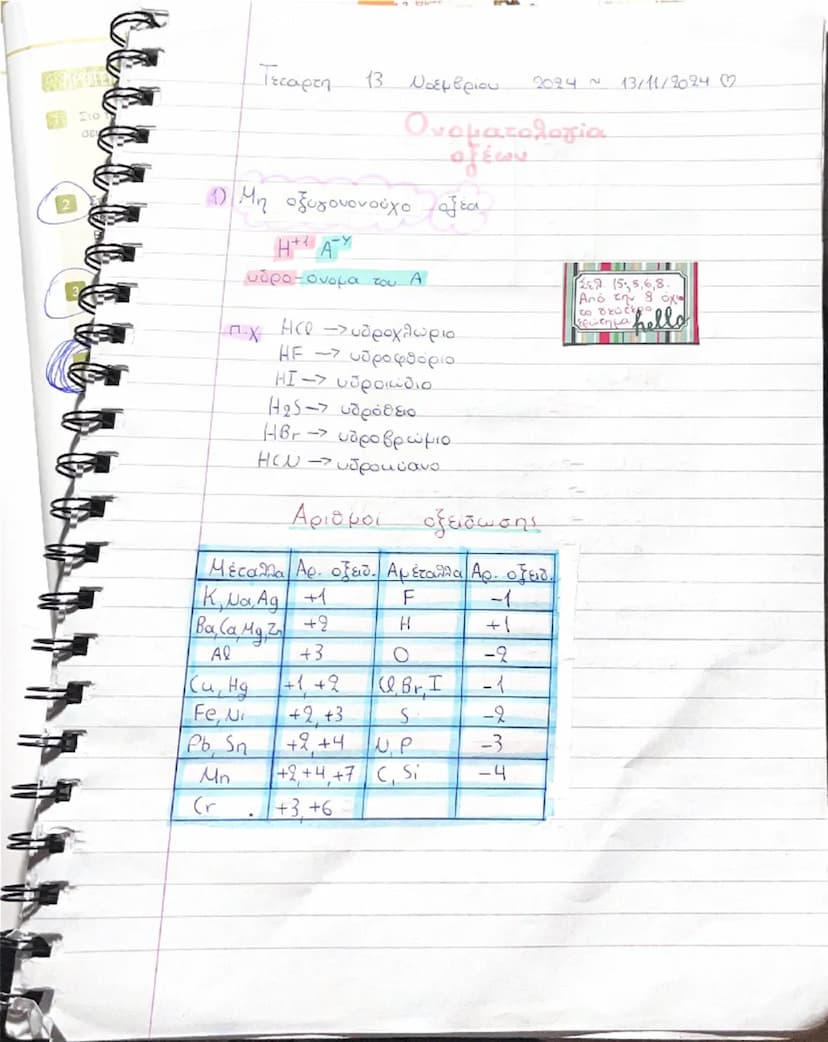 Τεταρτη 13 Νοεμβριου 2024 ~ 13/11/2024 ♡
Ονοματολογία
οξέων
1) Μη οξυγονονούχο οξέα
H+1 A-y
υδρο-όνομα του Α
π.χ HCl → υδροχλώριο
HF → υδροφθόριο
HI → υδροιώδιο
H2S → υδρόθειο
HBr → υδροβρώμιο
HCN → υδροκύανο
Σελ. 15: 5,6,8.
Από την 8 όχι
το δεύτερο
ερώτημα
hello
Αριθμοί οξείδωσης
Μέταλλα Αρ. οξειδ. Αμέταλλα Αρ. οξειδ.
K, Na, Ag +1 F -1
Ba, Ca, Mg, Zn +2 H +1
Al +3 O -2
Cu, Hg +1, +2 Cl, Br, I -1
Fe, Ni +2, +3 S -2
Pb, Sn +2, +4 N, P -3
Mn +2, +4, +7 C, Si -4
Cr +3, +6
2
3